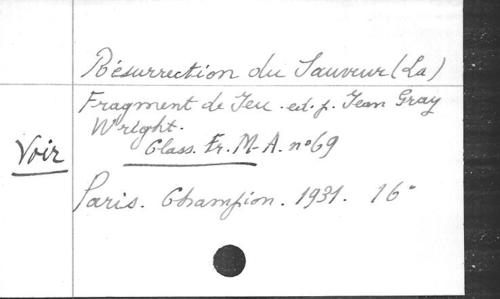 Résurrection du Sauveur (La)
Fragment de Jeu. ed. p. Jean Gray
Wright.
Voir Class. Fr. M-A. nº 69
Paris. Champion. 1931. 16º